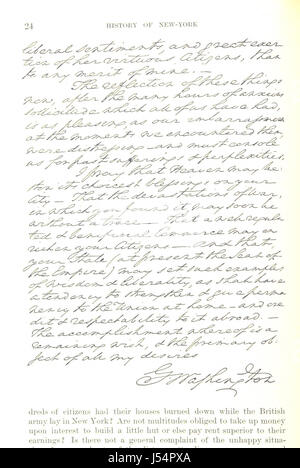 24 HISTORY OF NEW-YORK
liberal sentiments, and great exer-
tion of her virtuous Citizens, than
to any merit of mine. —
The reflection of these things
now, after the many hours of anxious
solicitude which all of us have had,
is as pleasing, as our embarrassments
at the moments we encountered them,
were distressing — and must console
us for past sufferings & perplexities.
I pray that Heaven may be-
stow its choicest blessings on your
City — That the devastations of war,
in which you found it, may soon be
without a trace — That a well regula-
ted & beneficial Commerce may en-
rich your Citizens — And that,
your State (at present the Seat of
the Empire) may set such examples
of wisdom & liberality, as shall have
a tendency to strengthen & give perma-
nency to the Union at home — and cre-
dit & respectability to it abroad. —
The accomplishment whereof is a
remaining wish, & the primary ob-
ject of all my desires
Go Washington
dreds of citizens had their houses burned down while the British
army lay in New York? Are not multitudes obliged to take up money
upon interest to build a little hut or else pay rent superior to their
earnings? Is there not a general complaint of the unhappy situa-
alamy
Image ID: J54PXA
www.alamy.com